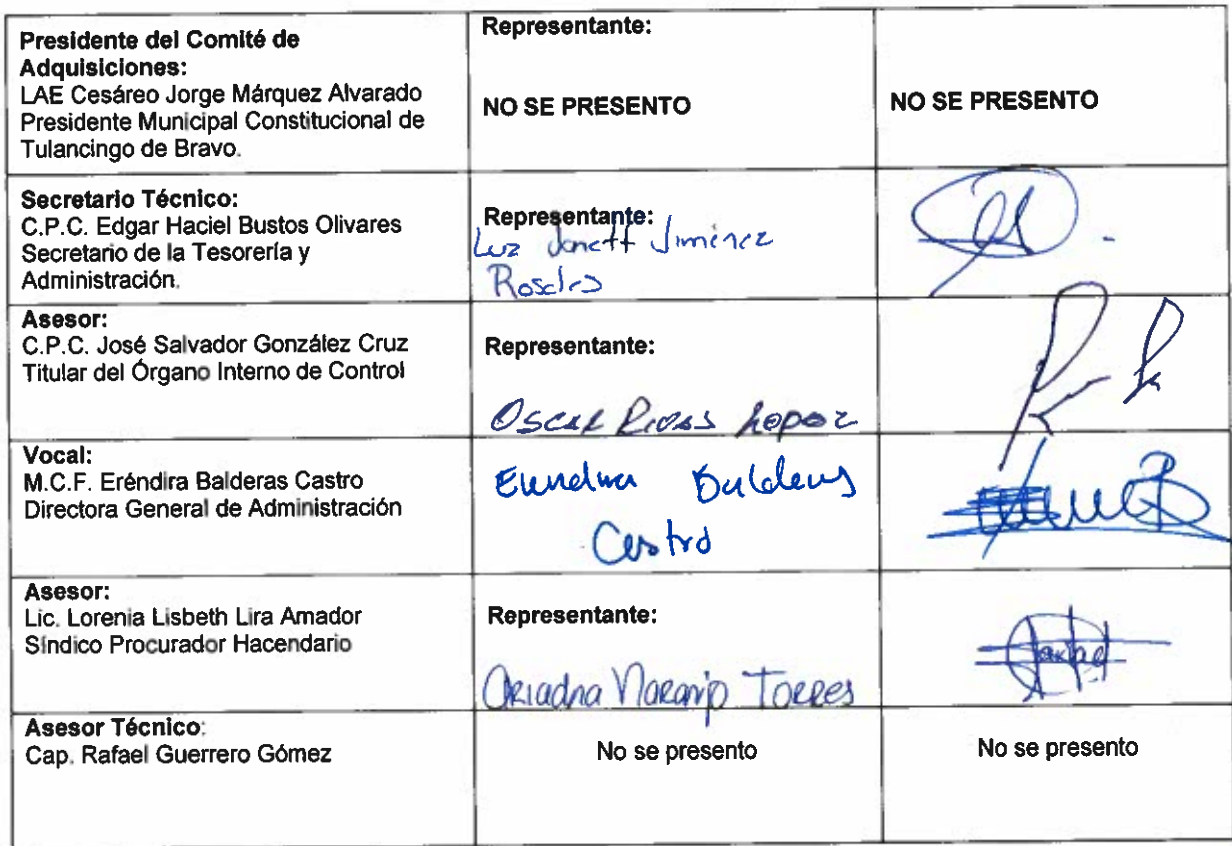 Presidente del Comité de
Adquisiciones:
LAE Cesáreo Jorge Márquez Alvarado
Presidente Municipal Constitucional de
Tulancingo de Bravo.
Representante:
NO SE PRESENTO
NO SE PRESENTO
Secretario Técnico:
C.P.C. Edgar Haciel Bustos Olivares
Secretario de la Tesorería y
Administración.
Representante:
Luz Janett Jiménez
Rosales
Asesor:
C.P.C. José Salvador González Cruz
Titular del Órgano Interno de Control
Representante:
Oscar Rivas Lopez
Vocal:
M.C.F. Eréndira Balderas Castro
Directora General de Administración
Erendira Balderas
Castro
Asesor:
Lic. Lorenia Lisbeth Lira Amador
Síndico Procurador Hacendario
Representante:
Ariadna Naranjo Torres
Asesor Técnico:
Cap. Rafael Guerrero Gómez
No se presento
No se presento